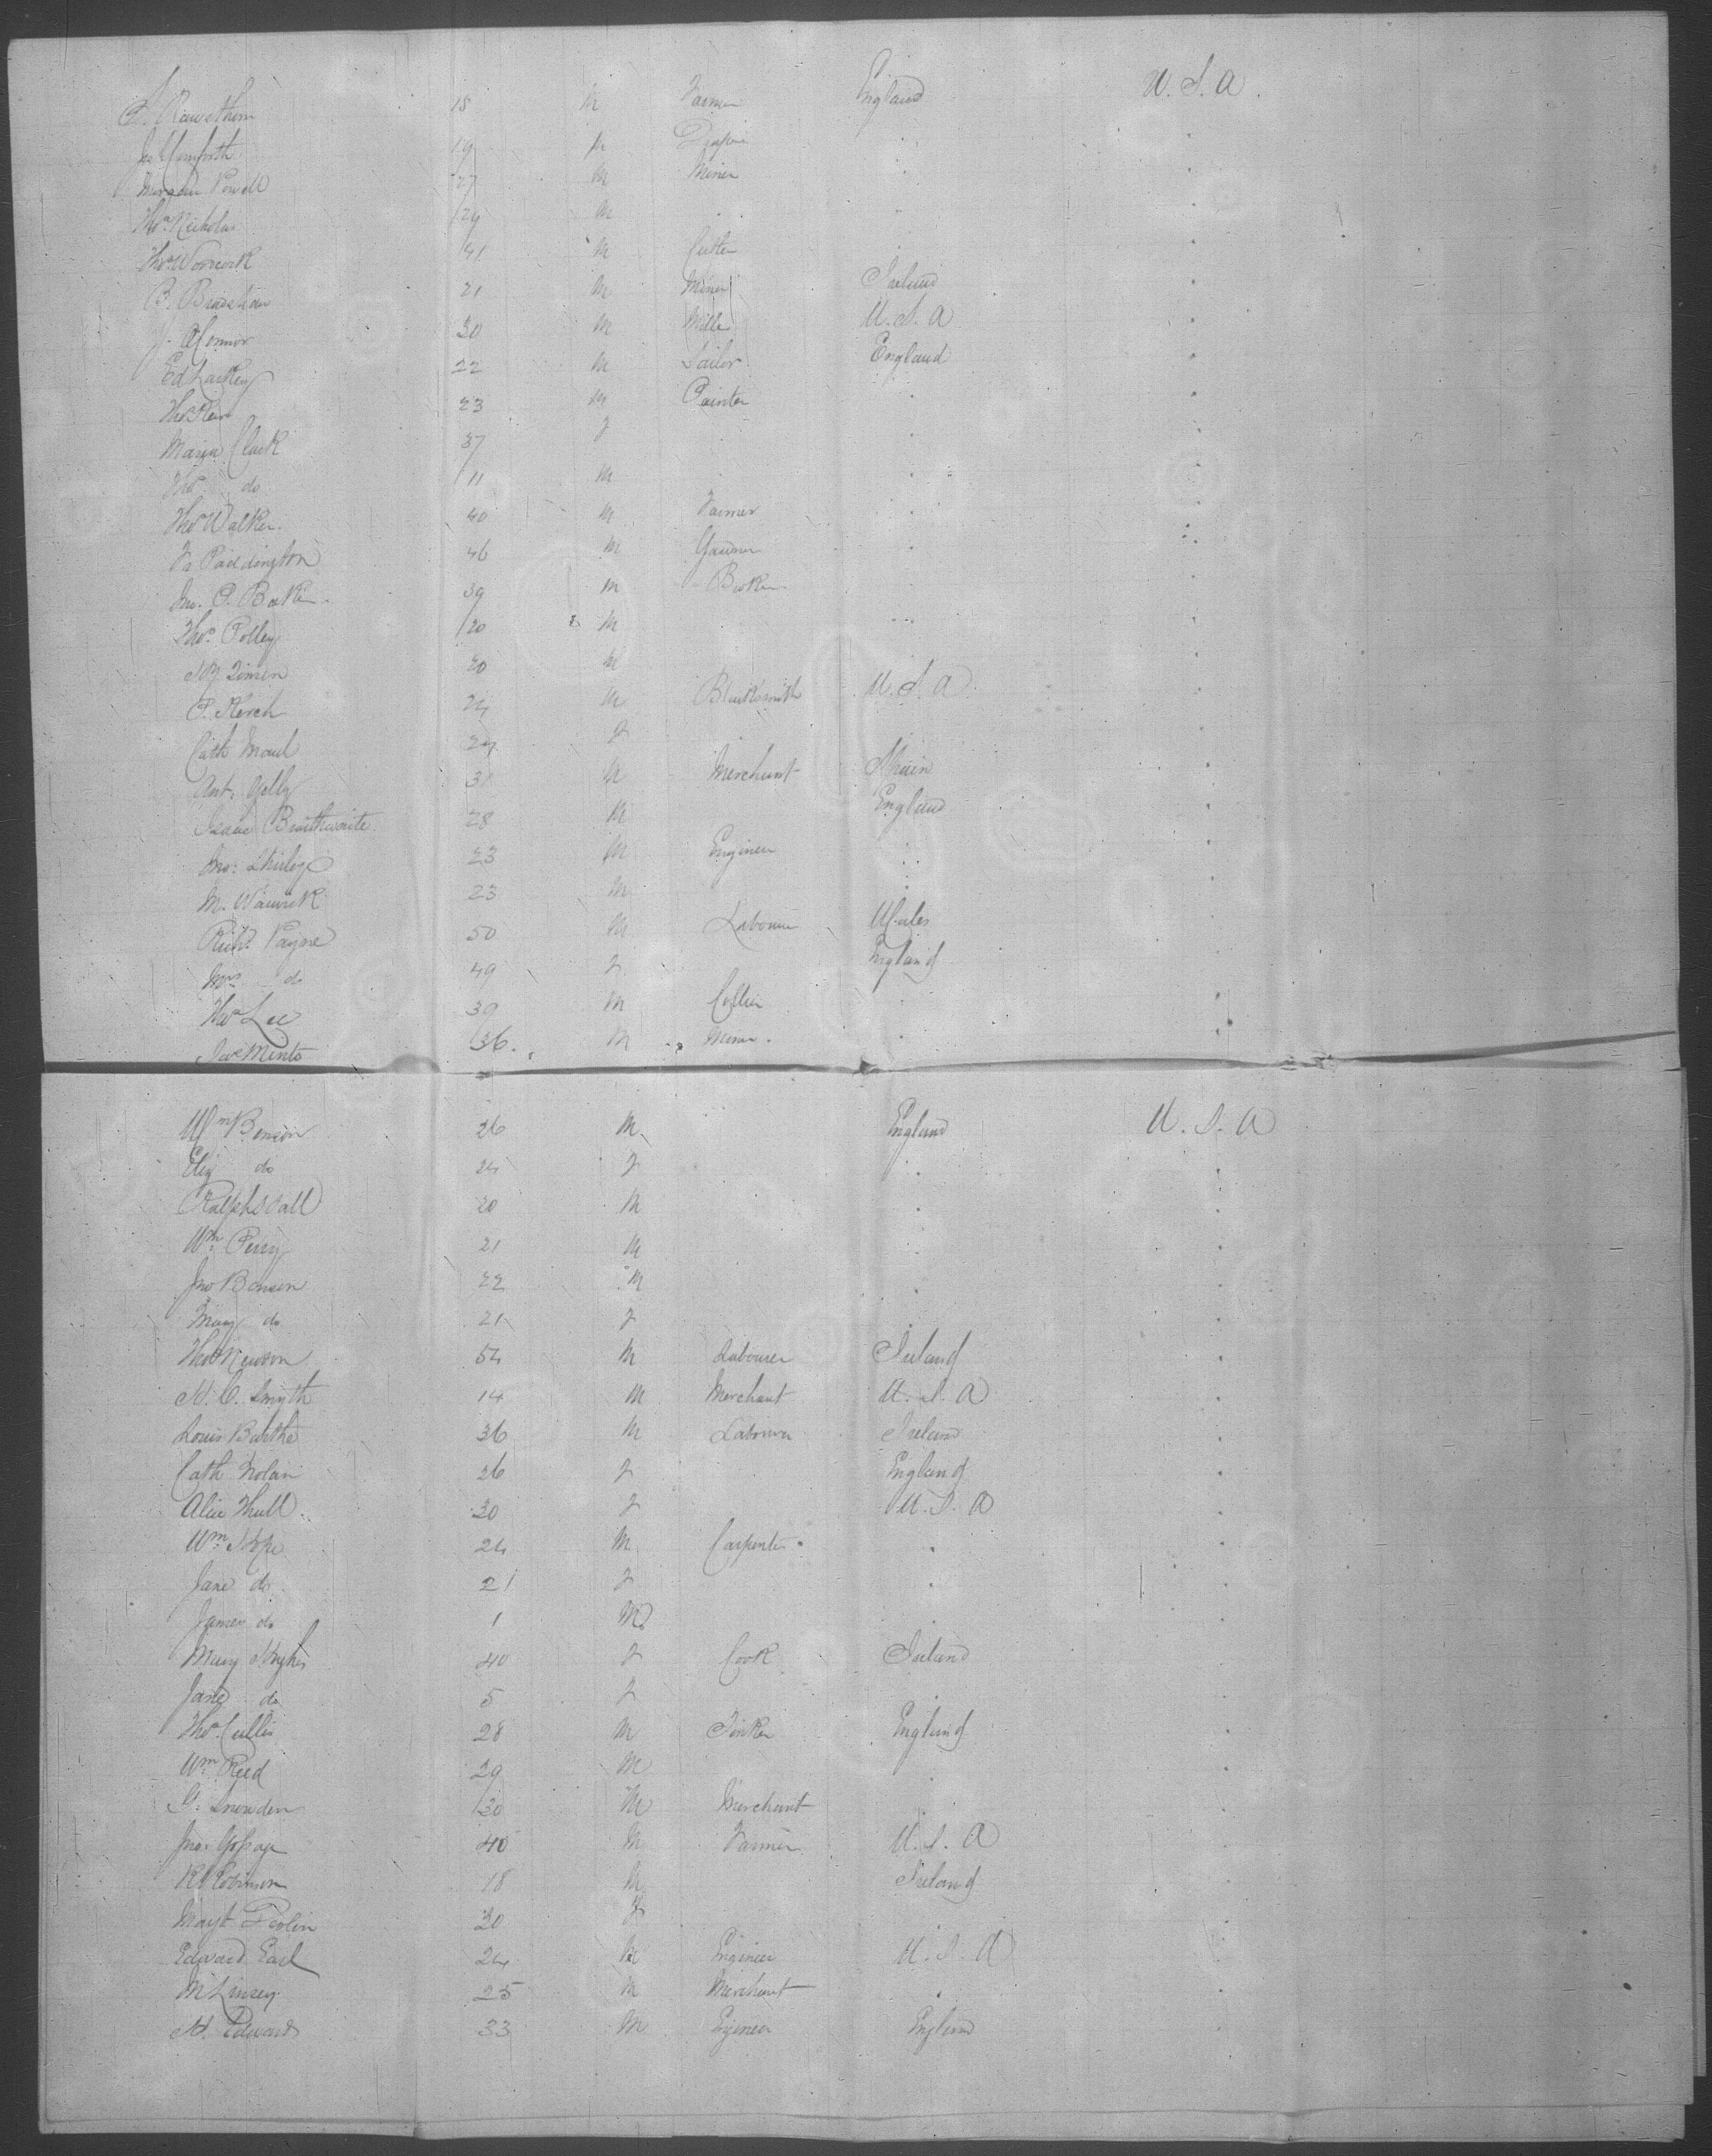 S. Rawsthorn 18 M Farmer England U.S.A.
Jn Cornforth 19 M Draper " "
Morgan Powell 27 M Miner " "
Thos Nicholas 24 M " " "
Thos Worrock 41 M Cutler " "
B. Bradshaw 21 M Miner Ireland "
J. OConnor 30 M Miller U.S.A "
Ed Laskey 22 M Sailor England "
Thos Rew 23 M Painter " "
Maria Clark 37 F " "
Thos do 11 M " "
Thos Walker 40 M Farmer " "
Fr Paddington 46 M " "
Jno. P. Baker 39 M " "
Thos Polley 20 M " "
20 M "
P. Kerch 24 M Blacksmith U.S.A "
Cath Maul 24 F "
Ant. Gelly 31 M Merchant Spain "
Isaac Braithwaite 28 M England "
Jno. Shirley 23 M Engineer " "
M. Warwick 23 M "
Richd Payne 50 M Labourer Wales
Mrs do 49 F England
Thos Lee 39 M Collier " "
Jas Minto 36 M Miner " "
Wm Benson 26 M England U.S.A
Eliz do 24 F " "
Ralph Hall 20 M " "
Wm Perry 21 M " "
Jno Benson 22 M " "
Mary do 21 F "
Thos Newson 54 M Labourer Ireland "
H. C. Smyth 14 M Merchant U.S.A "
Louis Burke 36 M Labourer Ireland "
Cath Nolan 26 F England "
Alice Thull 30 F U.S.A "
Wm Hope 24 M Carpenter " "
Jane do 21 F " "
James do 1 M " "
Mary Hughes 40 F Cook Ireland "
Jane do 5 F " "
Thos Cullis 28 M Tinker England "
Wm Reed 29 M " "
G. Snowden 30 M Merchant " "
Jno. Gossage 40 M Farmer U.S.A "
R Robinson 18 M Ireland "
Magt Devlin 30 F " "
Edward Earl 24 M Engineer U.S.A "
M Linsey 25 M Merchant "
H. Edwards 33 M Egineer England "